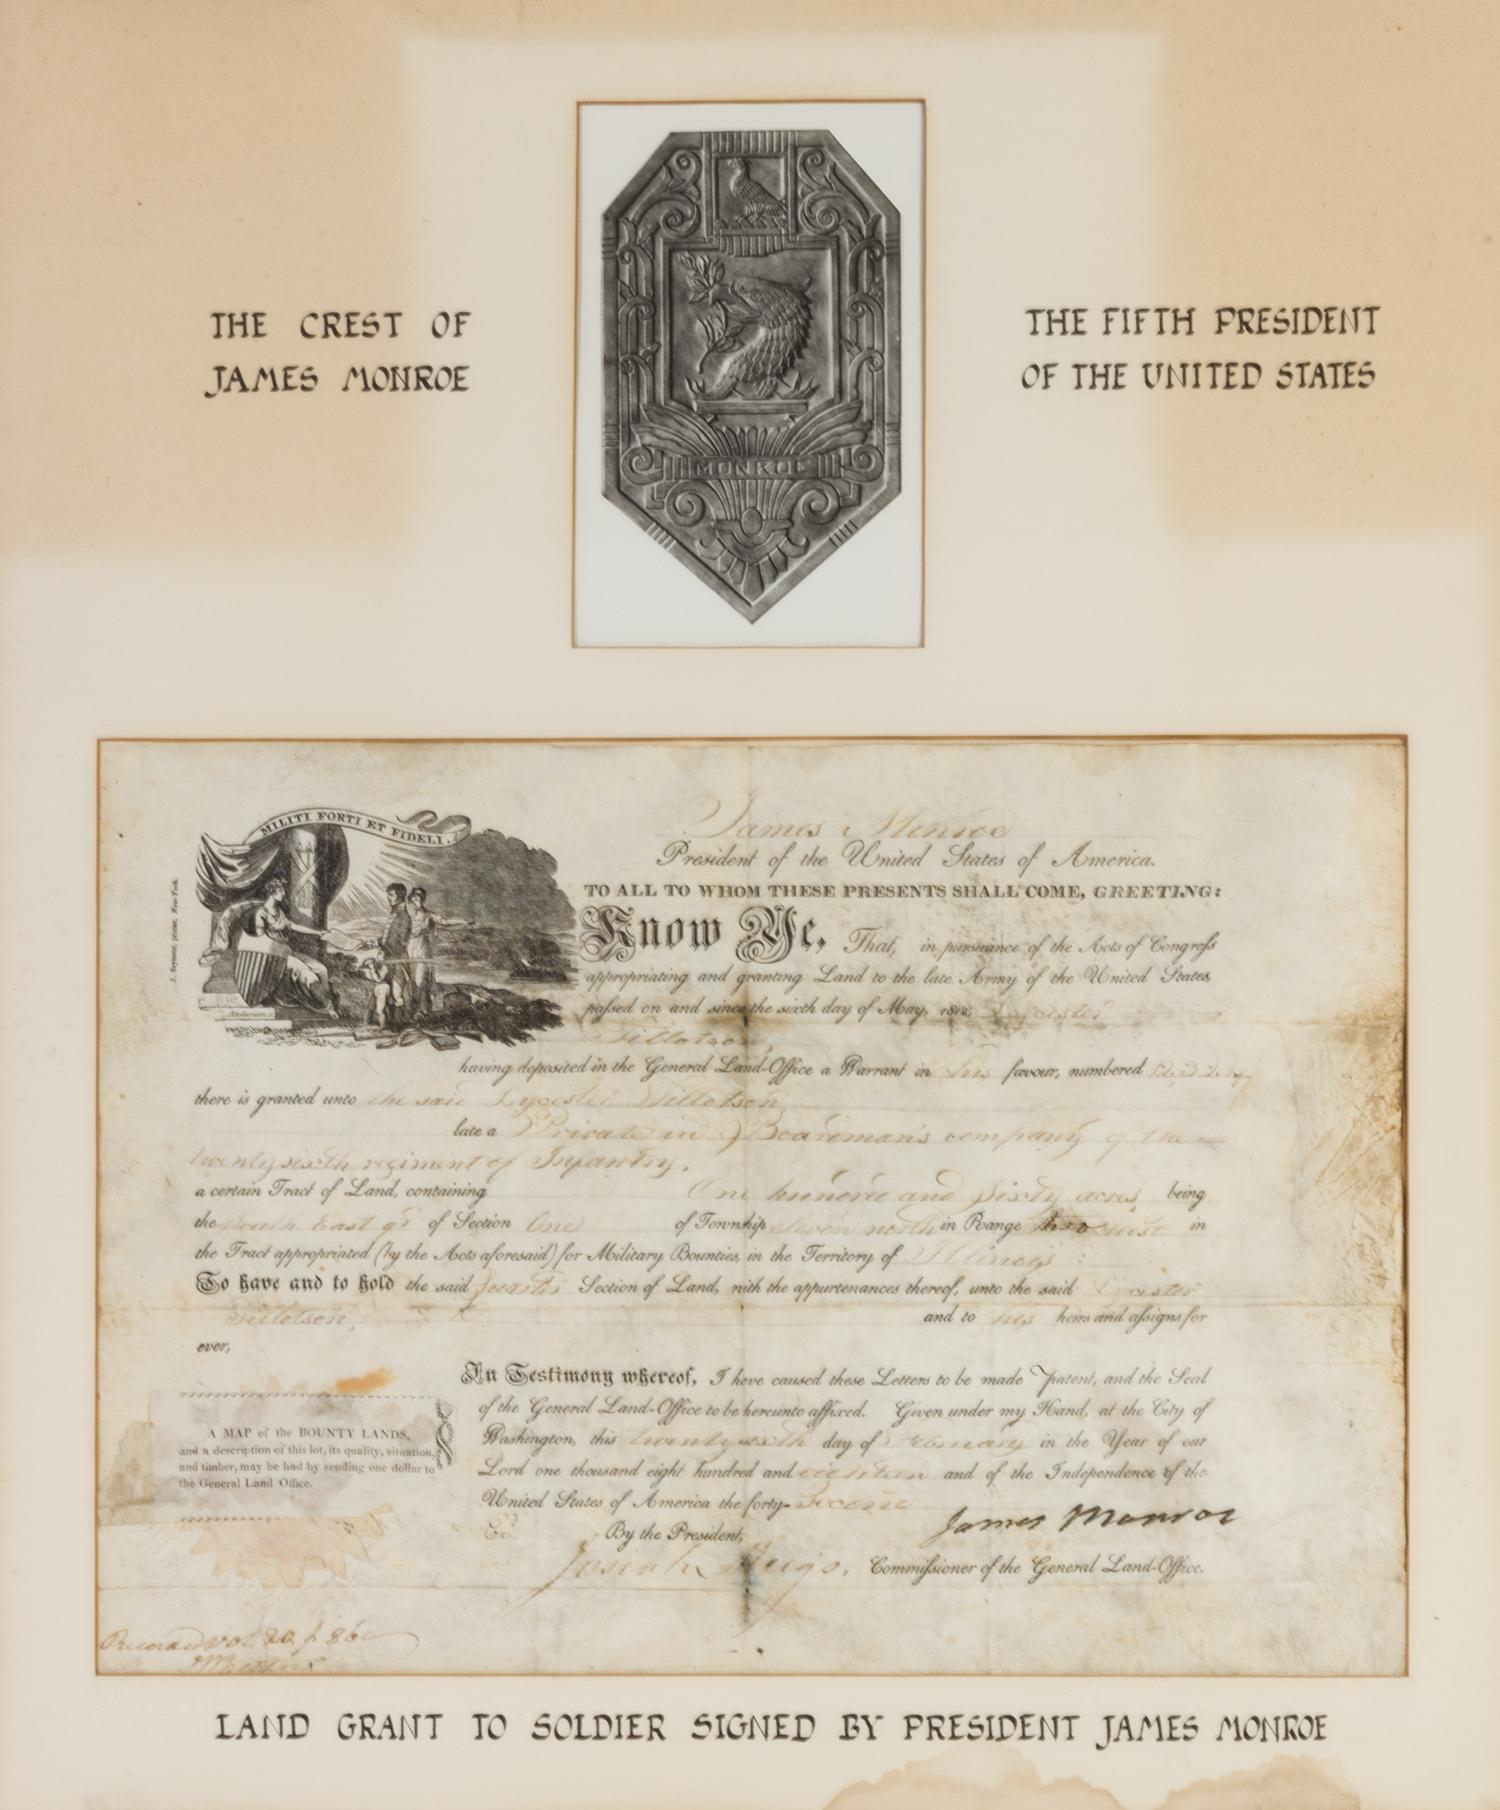 THE CREST OF
JAMES MONROE
THE FIFTH PRESIDENT
OF THE UNITED STATES
MONROE
MILITI FORTI ET FIDELI.
Anderson
James Monroe
President of the United States of America.
TO ALL TO WHOM THESE PRESENTS SHALL COME, GREETING:
Know Ye, That, in pursuance of the Acts of Congress
appropriating and granting Land to the late Army of the United States,
passed on and since the sixth day of May, 1812, Lycester
Tillotson,
having deposited in the General Land-Office a Warrant in his favour, numbered
there is granted unto the said Lycester Tillotson
late a Private in Boardman's company of the
twenty sixth regiment of Infantry,
a certain Tract of Land, containing One hundred and sixty acres, being
the South East qr of Section One of Township seven north in Range two west in
the Tract appropriated (by the Acts aforesaid) for Military Bounties, in the Territory of Illinois:
To have and to hold the said quarter Section of Land, with the appurtenances thereof, unto the said Lycester
Tillotson, and to his heirs and assigns for
ever,
In Testimony whereof, I have caused these Letters to be made Patent, and the Seal
of the General Land-Office to be hereunto affixed. Given under my Hand, at the City of
Washington, this twenty sixth day of February in the Year of our
Lord one thousand eight hundred and eighteen and of the Independence of the
United States of America the forty-second
A MAP of the BOUNTY LANDS,
and a description of this lot, its quality, situation,
and timber, may be had by sending one dollar to
the General Land Office.
James Monroe
By the President,
Josiah Meigs, Commissioner of the General Land-Office.
Recorded vol 20. p 86
LAND GRANT TO SOLDIER SIGNED BY PRESIDENT JAMES MONROE